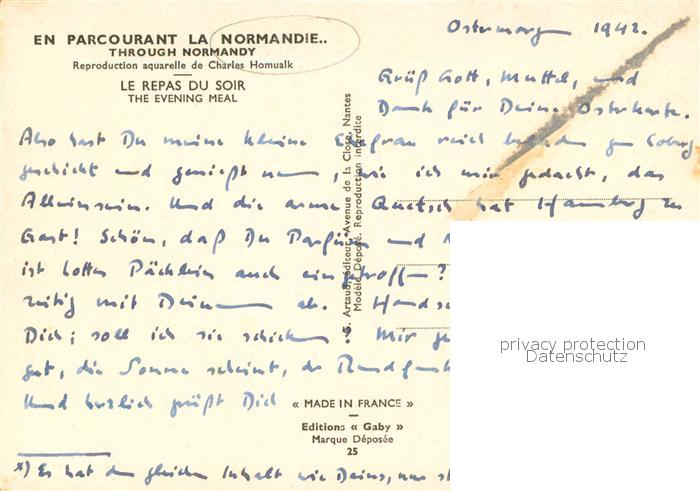 EN PARCOURANT LA NORMANDIE..
THROUGH NORMANDY
Reproduction aquarelle de Charles Homualk
LE REPAS DU SOIR
THE EVENING MEAL
Ostermorgen 1942.
Grüß Gott, Muttel, und
Dank für Deine Osterkarte.
Also hast Du meine kleine reich gen Coburg
geschickt und genießt nun, wie ich mir gedacht, das
Alleinsein. Und die arme Quetsch hat Hamburg zu
Gast! Schön, daß Du Parfüm und
ist Lottes Päckchen auch eingetroffen?
zeitig mit Deinem ab.
Dich; soll ich sie schicken? Mir
gut, die Sonne scheint, der
Und herzlich grüßt Dich
*) Es hat den gleichen Inhalt wie Deins, nur
« MADE IN FRANCE »
Editions « Gaby »
Marque Déposée
25
G. Artaud, éditeur, Avenue de la Close, Nantes
Modèle Déposé. Reproduction interdite
privacy protection
Datenschutz